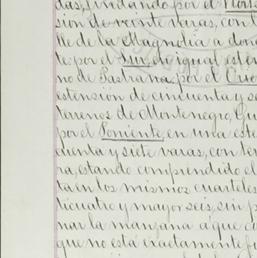 das, lindando por el Nor
sion de veinte varas, con t
lle de la Magnolia a don
te por el Sur de igual esten
no de Pastrana, por el
estension de cincuenta y se
terrenos de Montenegro,
por el Poniente, en una este
cuenta y siete varas, con ter
ra, estando comprendido el
ta en los mismos cuarteles
ticuatro y mayor seis, sin p
nar la manzana a que co
que no está exactamente